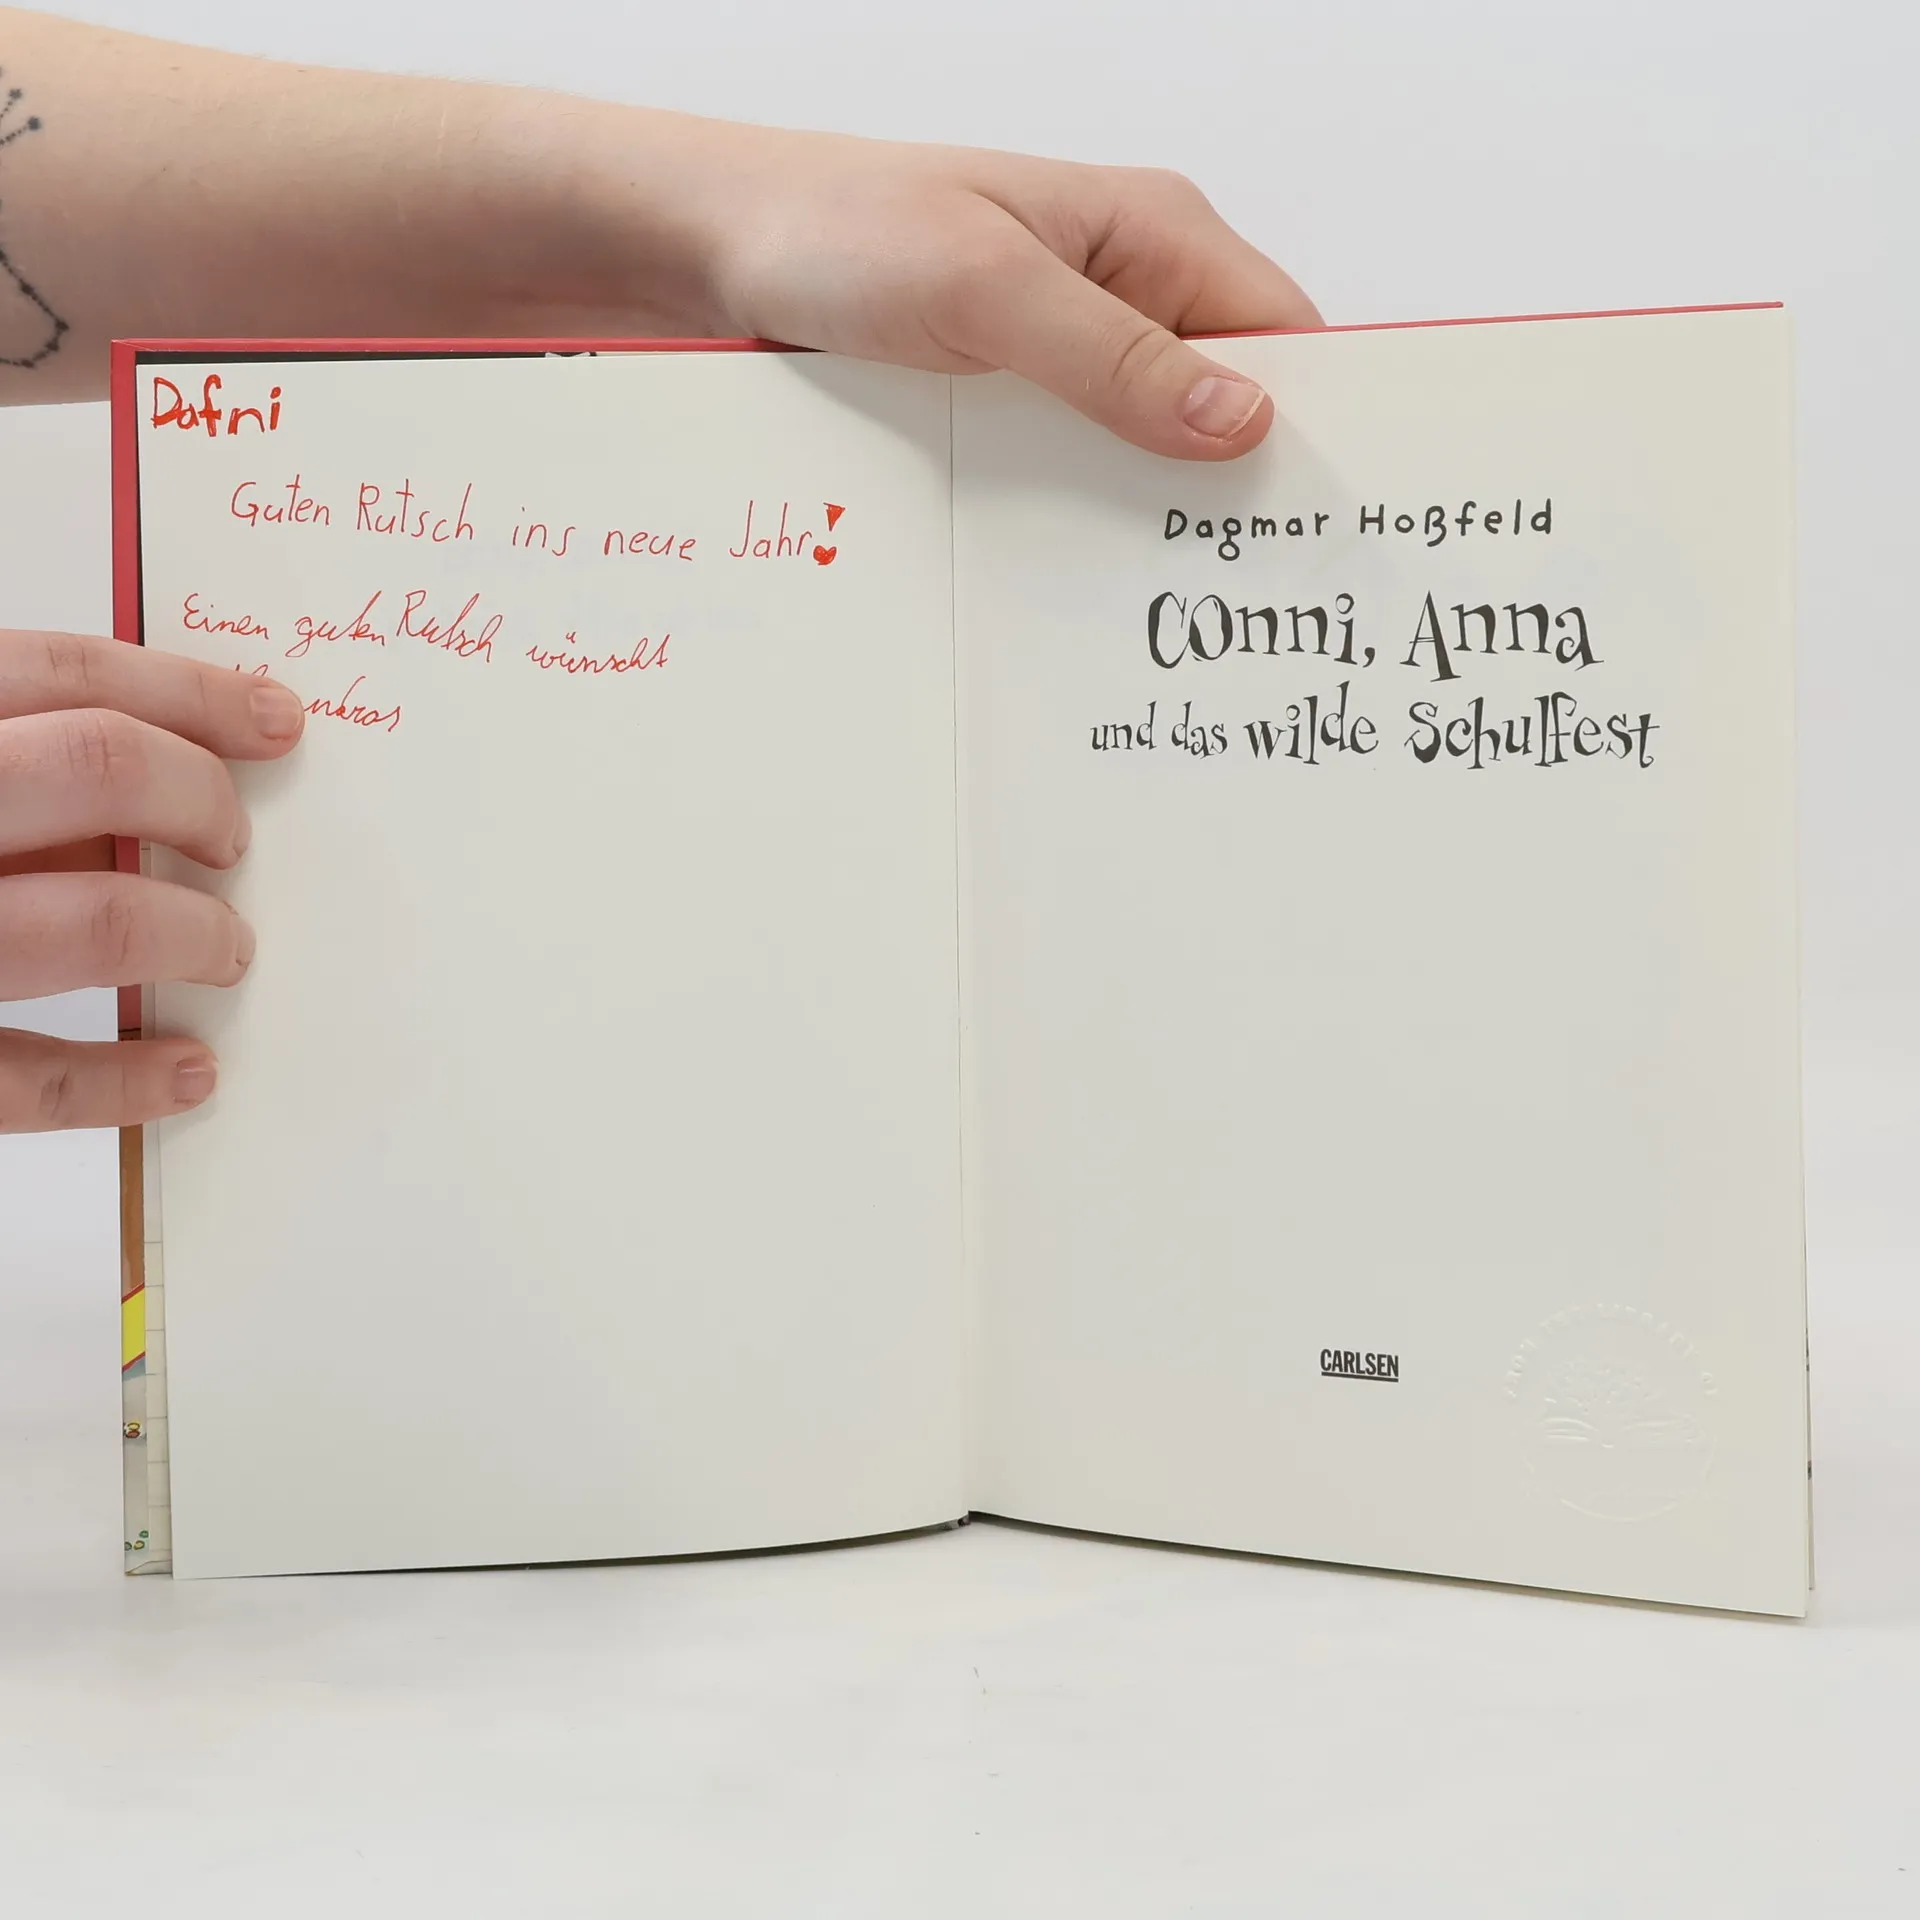 Dafni
Guten Rutsch ins neue Jahr!
Einen guten Rutsch wünscht
Dagmar Hoßfeld
Conni, Anna
und das wilde Schulfest
CARLSEN